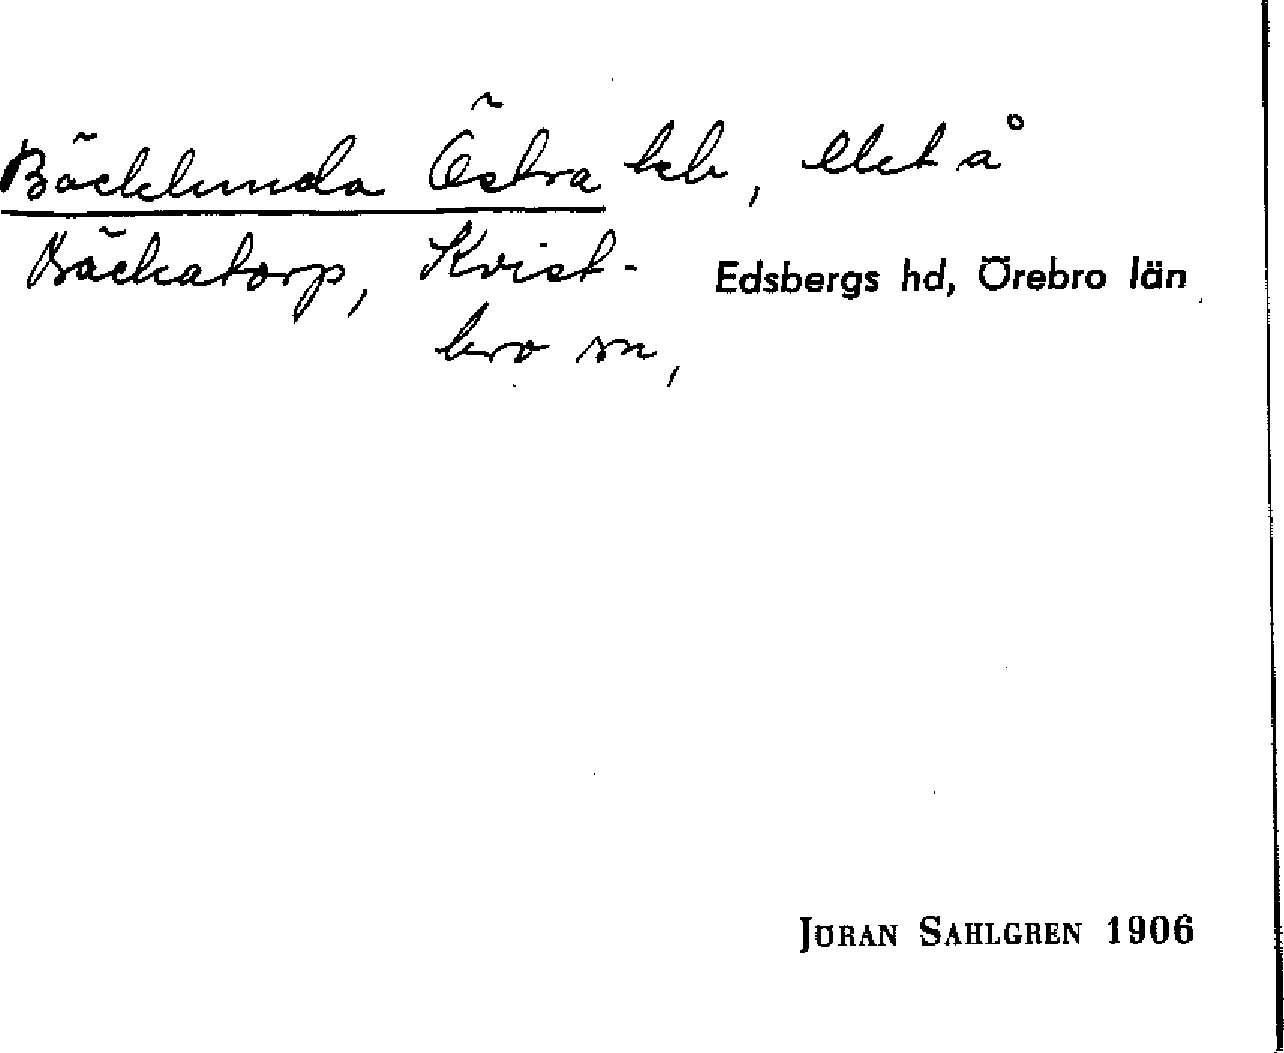 Bäcklunda Östra lgh, ebet å
Bäckatorp, Kvist-
bro sn,
Edsbergs hd, Örebro län
JÖRAN SAHLGREN 1906